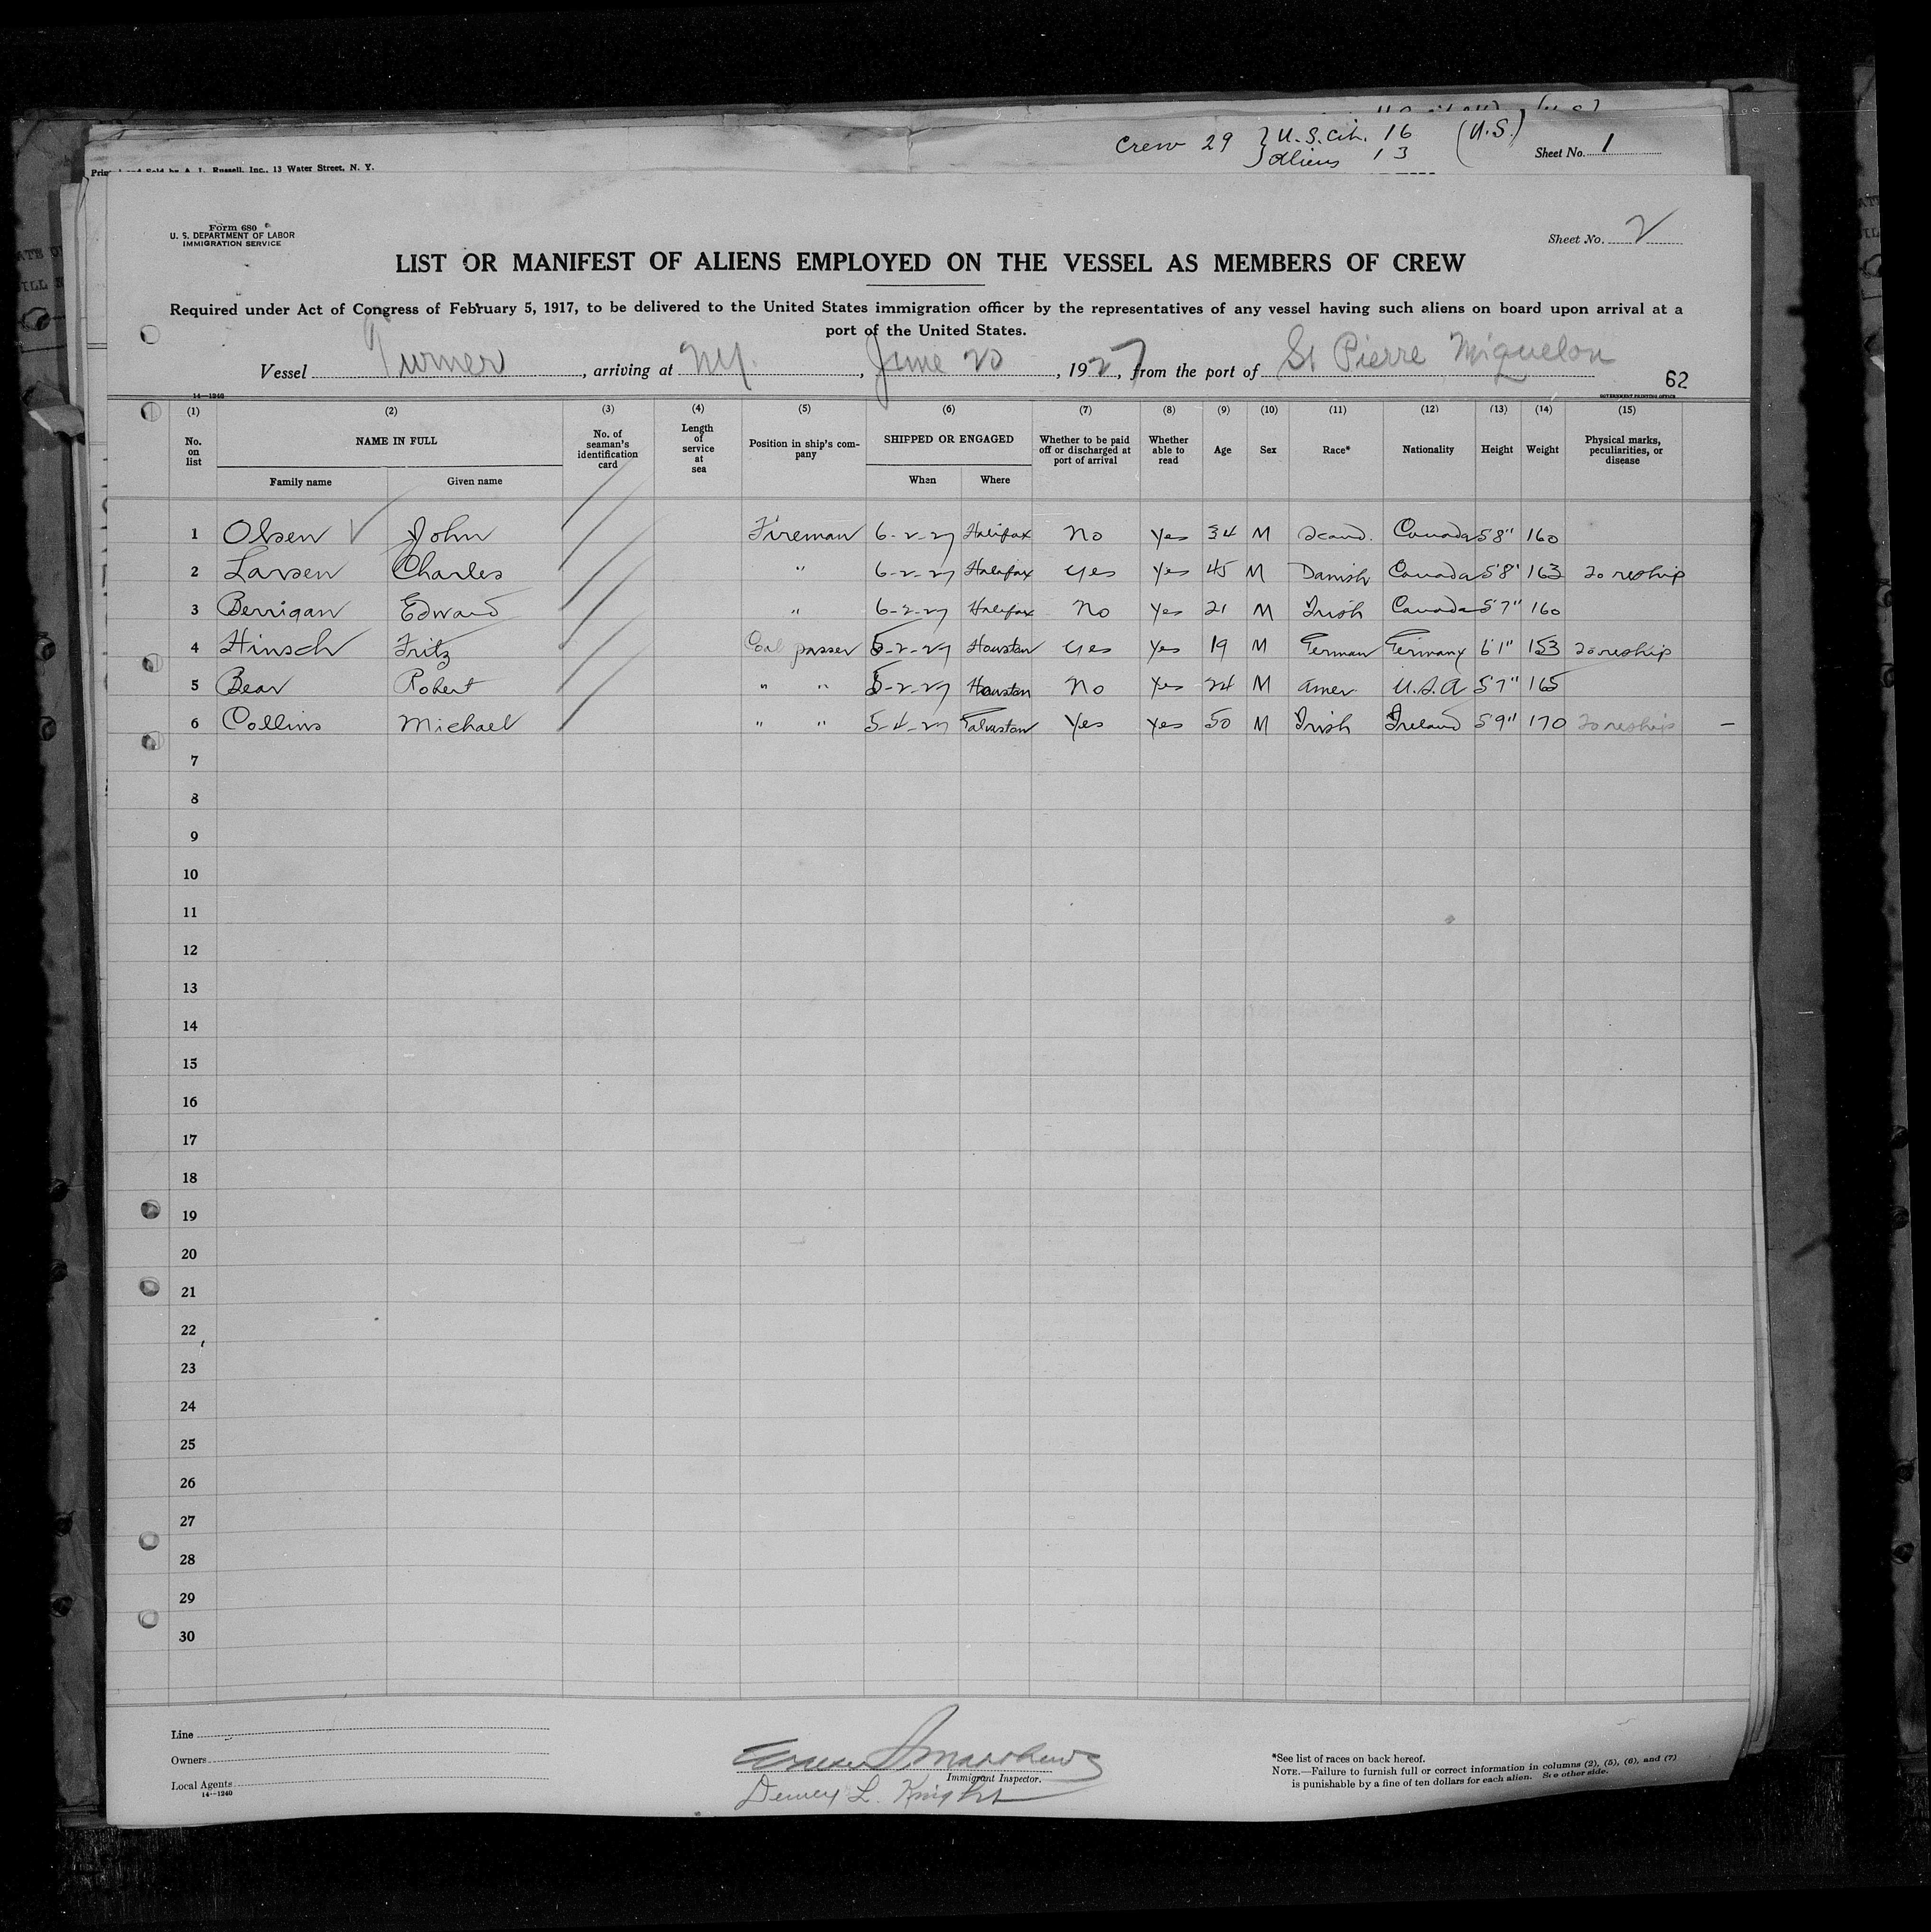 Crew 29 } U.S. Cit. 16 (U.S.)
Aliens 13
Sheet No. 1
13 Water Street, N. Y.
Form 680
U. S. DEPARTMENT OF LABOR
IMMIGRATION SERVICE
Sheet No. 2
LIST OR MANIFEST OF ALIENS EMPLOYED ON THE VESSEL AS MEMBERS OF CREW
Required under Act of Congress of February 5, 1917, to be delivered to the United States immigration officer by the representatives of any vessel having such aliens on board upon arrival at a
port of the United States.
Vessel Turner, arriving at NY., June 20, 1927, from the port of St Pierre Miquelon
62
14—1240
GOVERNMENT PRINTING OFFICE
(1) (2) (3) (4) (5) (6) (7) (8) (9) (10) (11) (12) (13) (14) (15)
No. on list NAME IN FULL No. of seaman's identification card Length of service at sea Position in ship's company SHIPPED OR ENGAGED Whether to be paid off or discharged at port of arrival Whether able to read Age Sex Race* Nationality Height Weight Physical marks, peculiarities, or disease
Family name Given name When Where
1 Olsen John Fireman 6-2-27 Halifax No Yes 34 M Scand. Canada 5'8" 160
2 Larsen Charles " 6-2-27 Halifax Yes Yes 45 M Danish Canada 5'8" 163 To reship
3 Berrigan Edward " 6-2-27 Halifax No Yes 21 M Irish Canada 5'7" 160
4 Hinsch Fritz Coal passer 5-2-27 Houston Yes Yes 19 M German Germany 6'1" 153 To reship
5 Bear Robert " " 5-2-27 Houston No Yes 24 M Amer. U.S.A 5'7" 165
6 Collins Michael " " 5-4-27 Galveston Yes Yes 50 M Irish Ireland 5'9" 170 To reship —
7
8
9
10
11
12
13
14
15
16
17
18
19
20
21
22
23
24
25
26
27
28
29
30
Line
Owners
Local Agents
14—1240
Matthews
Immigrant Inspector.
Dewey L. Knight
*See list of races on back hereof.
NOTE.—Failure to furnish full or correct information in columns (2), (5), (6), and (7)
is punishable by a fine of ten dollars for each alien. See other side.